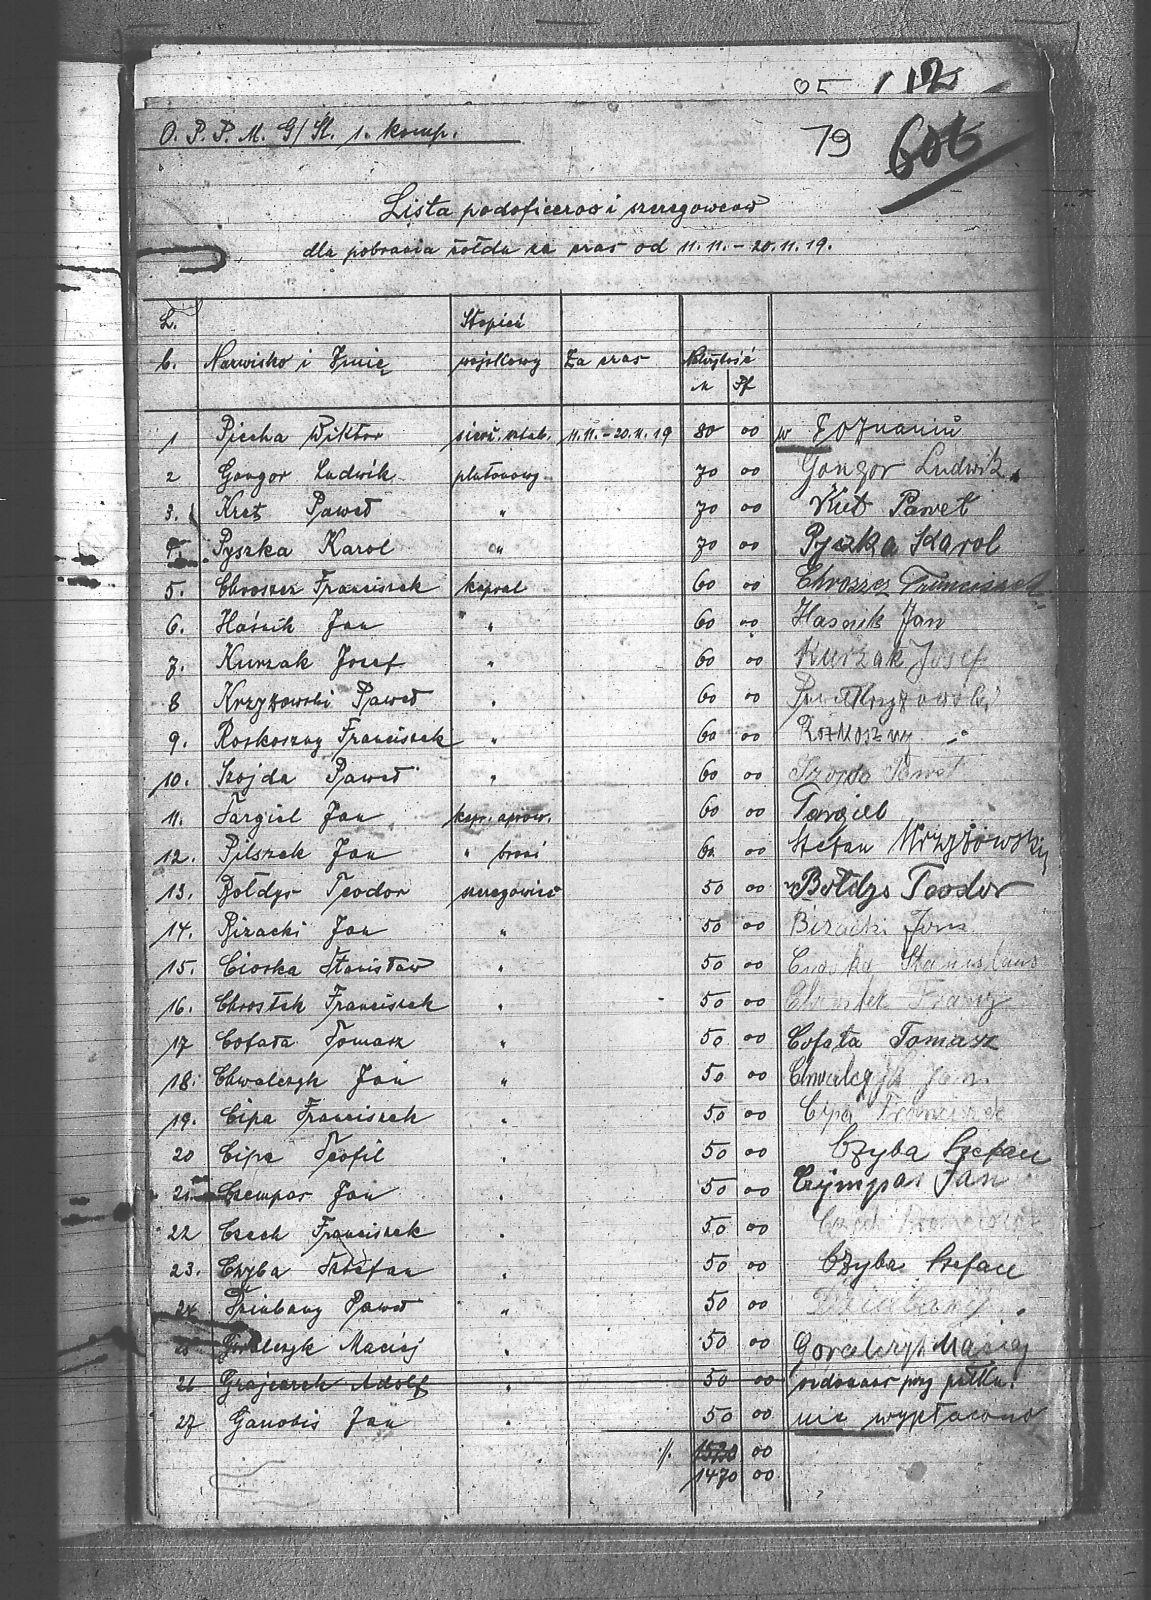 05 112
O. P. P. M. G/Śl. 1. komp.
79 606
Lista podoficerów i szeregowców
dla pobrania żołdu za czas od 11.11. – 20.11.19.
L. Stopień
b. Nazwisko i Imię wojskowy Za czas Należytość
M Pf
1 Piecha Wiktor sierż. sztab. 11.11.–20.11.19 80 00 w Poznaniu
2 Gongor Ludwik plutonowy 70 00 Gongor Ludwik
3. Kret Paweł " 70 00 Paweł
4. Pyszka Karol " 70 00 Pyszka Karol
5. Chroszcz Franciszek kapral 60 00 Chroszcz Franciszek
6. Haśnik Jan " 60 00 Hasnik Jan
7. Kurzak Josef " 60 00 Kurzak Josef
8 Krzyżowski Paweł " 60 00 Krzyżowski
9. Roskoszny Franciszek " 60 00 Rozkoszny
10. Szojda Paweł " 60 00 Szojda Paweł
11. Targiel Jan kapr. aprow. 60 00 Targiel
12. Pilszek Jan " broni 60 00 Stefan Krzyżowski
13. Bołdys Teodor szeregowiec 50 00 Bołdys Teodor
14. Bizacki Jan " 50 00 Bizacki Jan
15. Cioska Stanisław " 50 00
16. Chrostek Franciszek " 50 00 Chrostek Franz
17 Cofała Tomasz " 50 00 Cofała Tomasz
18. Chwalczyk Jan " 50 00 Chwalczyk Jan
19. Cipa Franciszek " 50 00 Cipa Franciszek
20 Cipa Teofil " 50 00 Czyba Szefan
21. Czempas Jan " 50 00 Czympas Jan
22 Czech Franciszek " 50 00 Czech
23. Czyba Stefan " 50 00 Czyba Szefan
24 Paweł " 50 00
25 Goralczyk Maciej " 50 00 Goralczyk Maciej
26 Grajcarek Adolf " 50 00 ordonans przy pułku.
27 Ganobis Jan " 50 00 nie wypłacono
//. 1520 00
1470 00